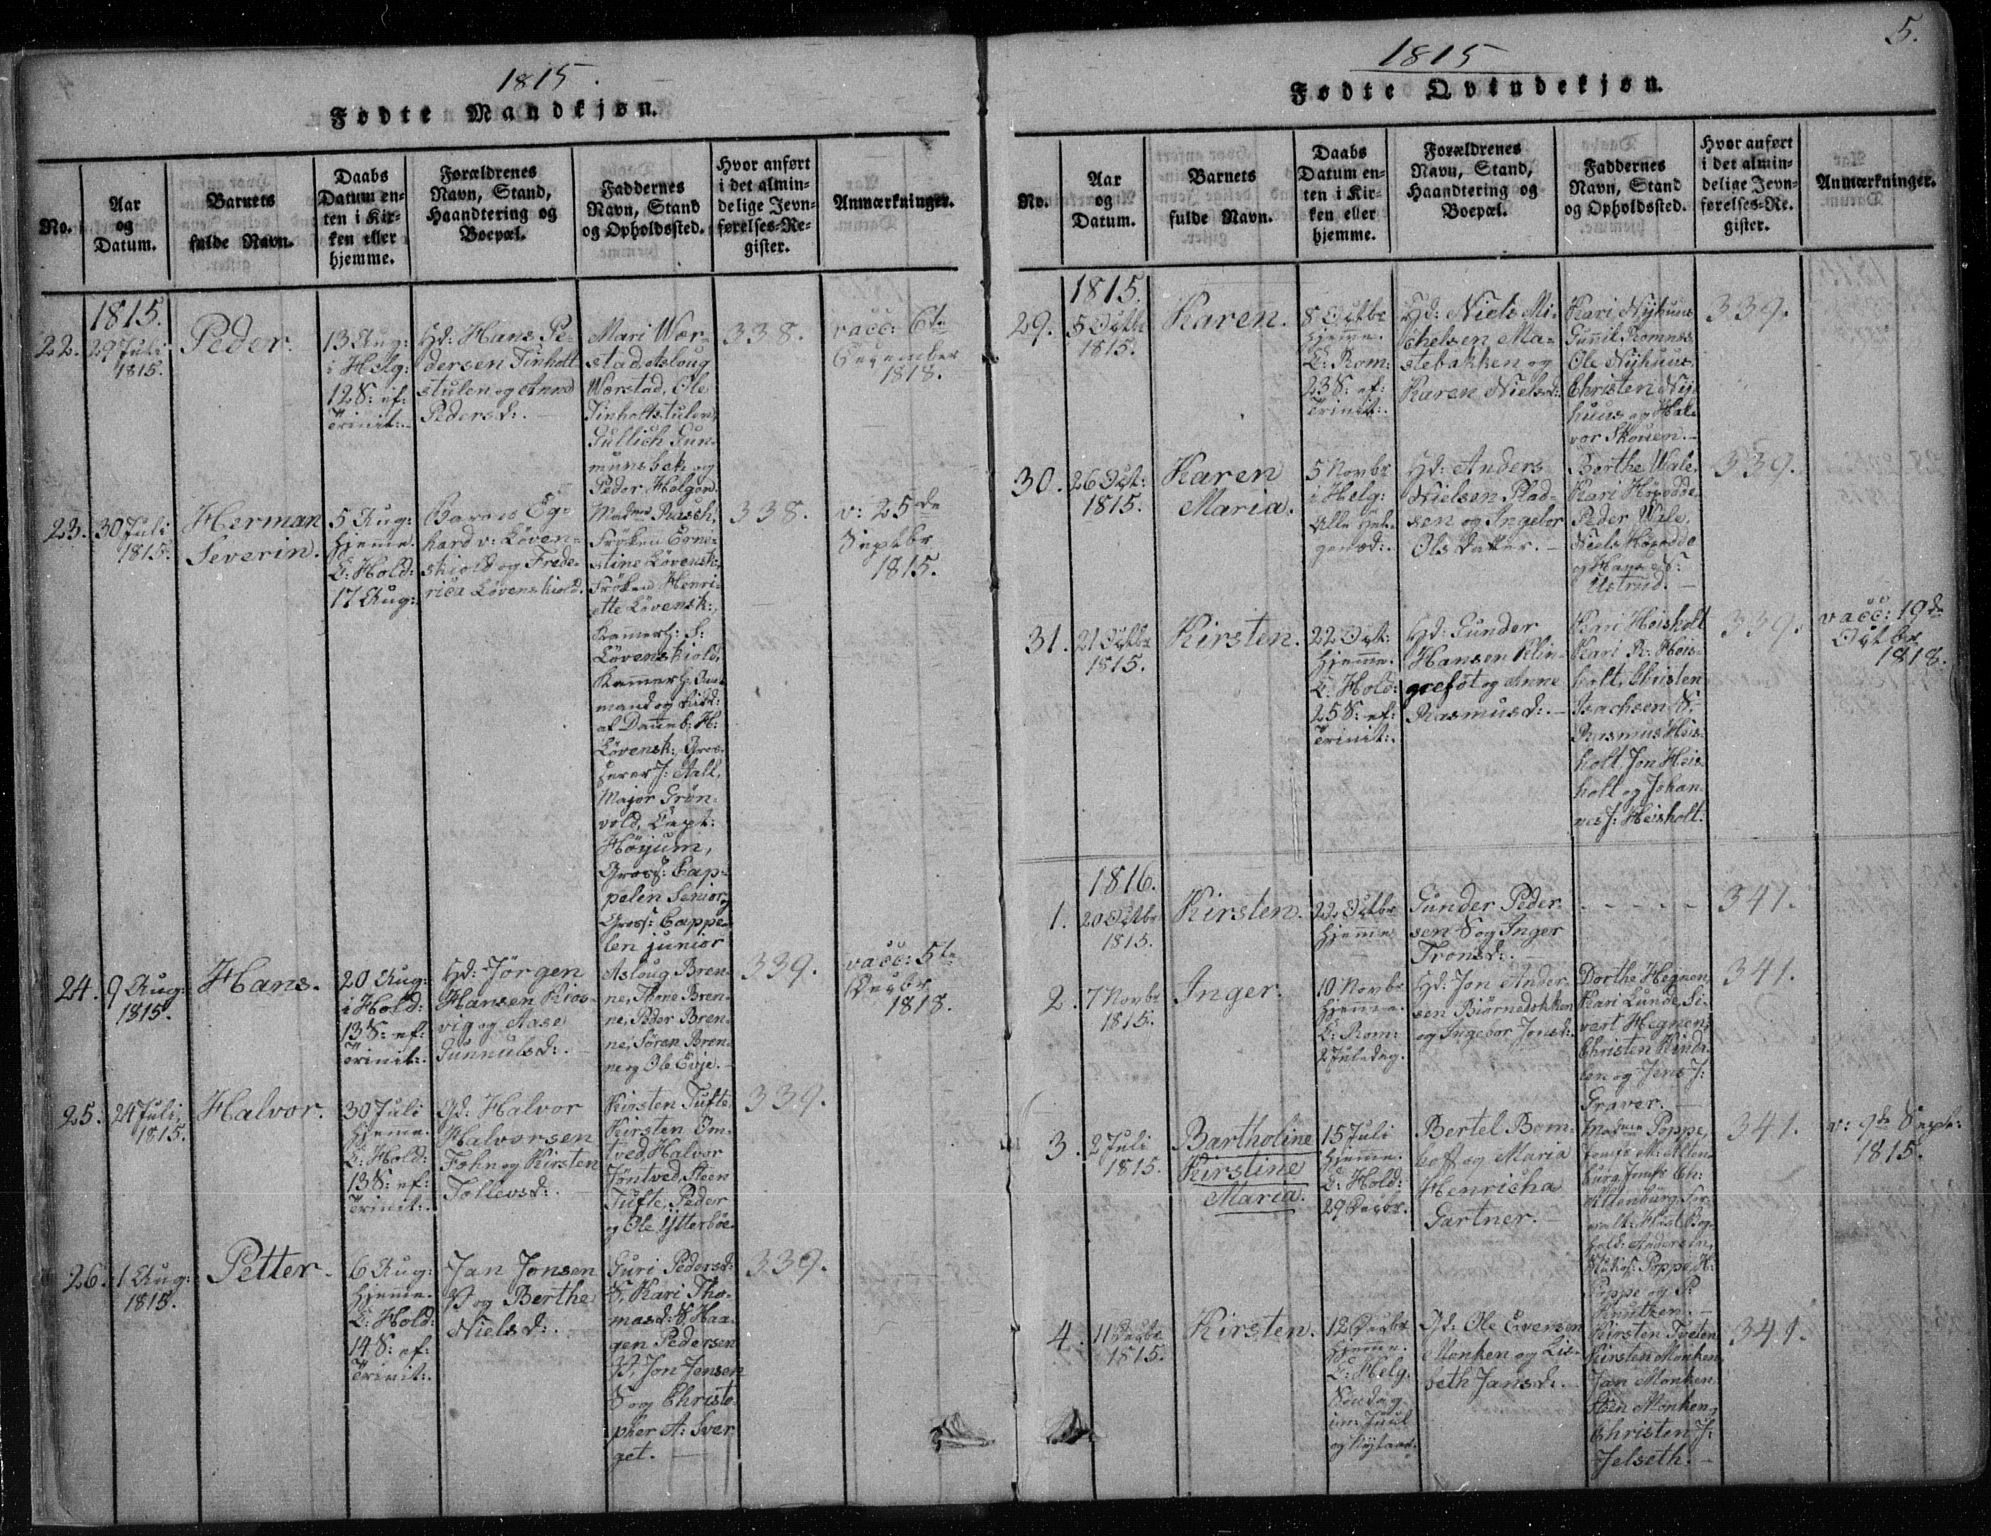 1815.
Fødte Mandkjøn.
No.
Aar
og
Datum.
Barnets
fulde Navn.
Daabs
Datum en-
ten i Kir-
ken eller
hjemme.
Forældrenes
Navn, Stand,
Haandtering og
Boepæl.
Faddernes
Navn, Stand
og Opholdssted.
Hvor anført
i det almin-
delige Jevn-
førelses-Re-
gister.
Anmærkninger.
1815.
22.
29 Juli
1815.
Peder.
13 Aug:
i Helg:
12 S: ef:
Trinit:
Gd: Hans Pe-
dersen Tinholt-
stulen og Anne
Pedersd:
Mari Wær-
stad, Asloug
Wærstad, Ole
Tinholtstulen,
Gullich Gun-
munsbek og
Peder Helgen.
338.
vacc: 6te
December
1818.
23.
30 Juli
1815.
Herman
Severin.
5 Aug:
hjemme.
C: Hold:
17 Aug:
Baron Eg-
hard v: Løven-
skiold og Frede-
rica Løvenskiold.
Madme Rasch,
Frøken Erne-
stine Løvensk:,
Frøken Henri-
ette Løvensk:,
Kammerh: S:
Løvenskiold,
Kammerh: Amt-
mand og Ridd:
af Danneb: H:
Løvensk:, Gros-
serer J: Aall,
Major Grøn-
vold, Capt:
Höyum,
Gross: Cap-
pelen Senior og
Gross: Cappe-
len junior
338.
v: 25de
Septbr
1815.
24.
9 Aug:
1815.
Hans.
20 Aug:
i Hold:
13 S: ef:
Trinit:
Hd: Jörgen
Hansen Kros-
vig og Aase
Gunnulsd:
Asloug Bren-
ne, Anne Bren-
ne, Peder Bren-
ne, Søren Bren-
ne og Ole Evje.
339.
vacc: 5te
Decbr
1818.
25.
24 Juli
1815.
Halvor.
30 Juli
hjemme.
C: Hold:
13 S: ef:
Trinit:
Gd: Halvor
Halvorsen
Fohn og Kirsten
Tollevsd:
Kirsten Tufte,
Kirsten Om-
tved, Halvor
Jöntved, Steen
Tufte, Peder
og Ole Ytterböe.
339.
26.
1 Aug:
1815.
Petter.
6 Aug:
hjemme.
C: Hold:
14 S: ef:
Trinit:
Jan Jonsen
P og Berthe
Nielsd:
Guri Pedersd:
S, Kari Tho-
masd: S, Haa-
gen Pedersen
P, Jon Jensen
S og Christo-
pher A: Sver-
get.
339.
5.
1815
Fødte Qvindekjøn.
No.
Aar
og
Datum.
Barnets
fulde Navn.
Daabs
Datum en-
ten i Kir-
ken eller
hjemme.
Forældrenes
Navn, Stand,
Haandtering og
Boepæl.
Faddernes
Navn, Stand
og Opholdssted.
Hvor anført
i det almin-
delige Jevn-
førelses-Re-
gister.
Anmærkninger.
1815.
29.
5 Octbr
1815.
Karen.
8 Octbr
hjemme.
C: Rom:
23 S: ef:
Trinit:
Hd: Niels Mi-
chelsen Ma-
stebakken og
Karen Nielsd:
Kari Nyhuus
Gunnil Romnes,
Ole Nyhuus,
Christen Ny-
huus og Hal-
vor Skouen.
339.
30.
26 Oct:
1815.
Karen
Maria.
5 Novbr
i Helg:
Alle Hel-
gensd:
Hd: Anders
Nielsen Plad-
sen og Ingebor
Olsdatter.
Berthe Wale,
Kari Höydde,
Peder Wale,
Niels Höydde
og Hans S:
Ulstrud.
339.
31.
21 Octbr
1815.
Kirsten.
22 Oct:
hjemme.
C: Hold:
25 S: ef:
Trinit:
Hd: Gunder
Hansen Klin-
gefót og Anne
Rasmusd:
Kari Heisholt
Kari R: Heis-
holt, Christen
Isachsen S.
Rasmus Heis-
holt, Jon Heis-
holt og Johan-
nes J: Heisholt.
339.
vacc: 19de
Octbr
1818.
1816.
1.
20 Octbr
1815.
Kirsten.
22 Octbr
hjemme
Gunder Peder-
sen S og Inger
Tronsd:
341.
2.
7 Novbr
1815.
Inger.
10 Novbr
hjemme.
C: Rom:
2 Juledag.
Hd: Jon Ander-
sen Biørnedokken
og Ingebor Jonsd:
Dorthe Hegnen,
Kari Lunde, Si-
vert Hegnen,
Christen Hinda-
len og Jens J:
Graver.
341.
3.
2 Juli
1815.
Bartholine
Kirstine
Maria.
15 Juli
hjemme.
C: Hold:
29 Decbr.
Bertel Bom-
hoff og Maria
Henricha
Gartner.
Madme Poppe,
Jomfr M: Alten-
burg, Jomfr Ch:
Altenburg, For-
valt: Hust, Bog-
hold: Andersen,
Poppe, H:
Poppe og P:
Knutzen.
341.
v: 9de Septr:
1815.
4.
11 Decbr
1815.
Kirsten.
12 Decbr
hjemme.
C: Helg.
Söndag
im: Juul
og Nytaar.
Gd: Ole Evensen
Monken og Lis-
beth Jansd:
Kirsten Tveten,
Kirsten Monken,
Jan Monken
Sten Monken og
Christen J:
Jelseth.
341.